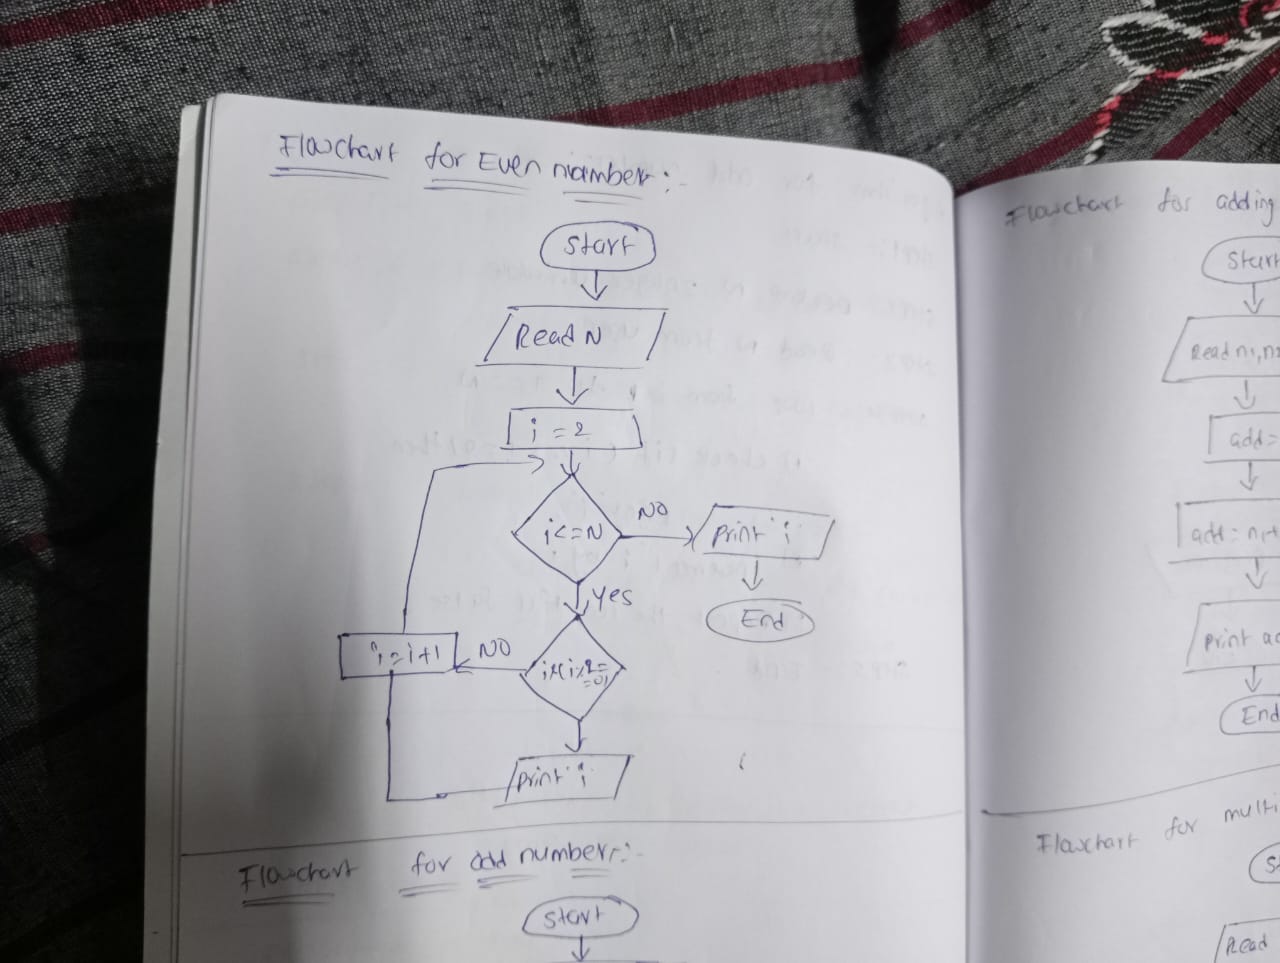 Flowchart for Even number:-
Start
Read N
i = 2
i<=N
NO
print i
End
yes
if(i%2==0)
NO
i=i+1
print i
Flowchart for odd number:-
Start
Flowchart for adding
Start
Read n1,n2
add=
add= n1+
print ad
End
Flowchart for multi
Read